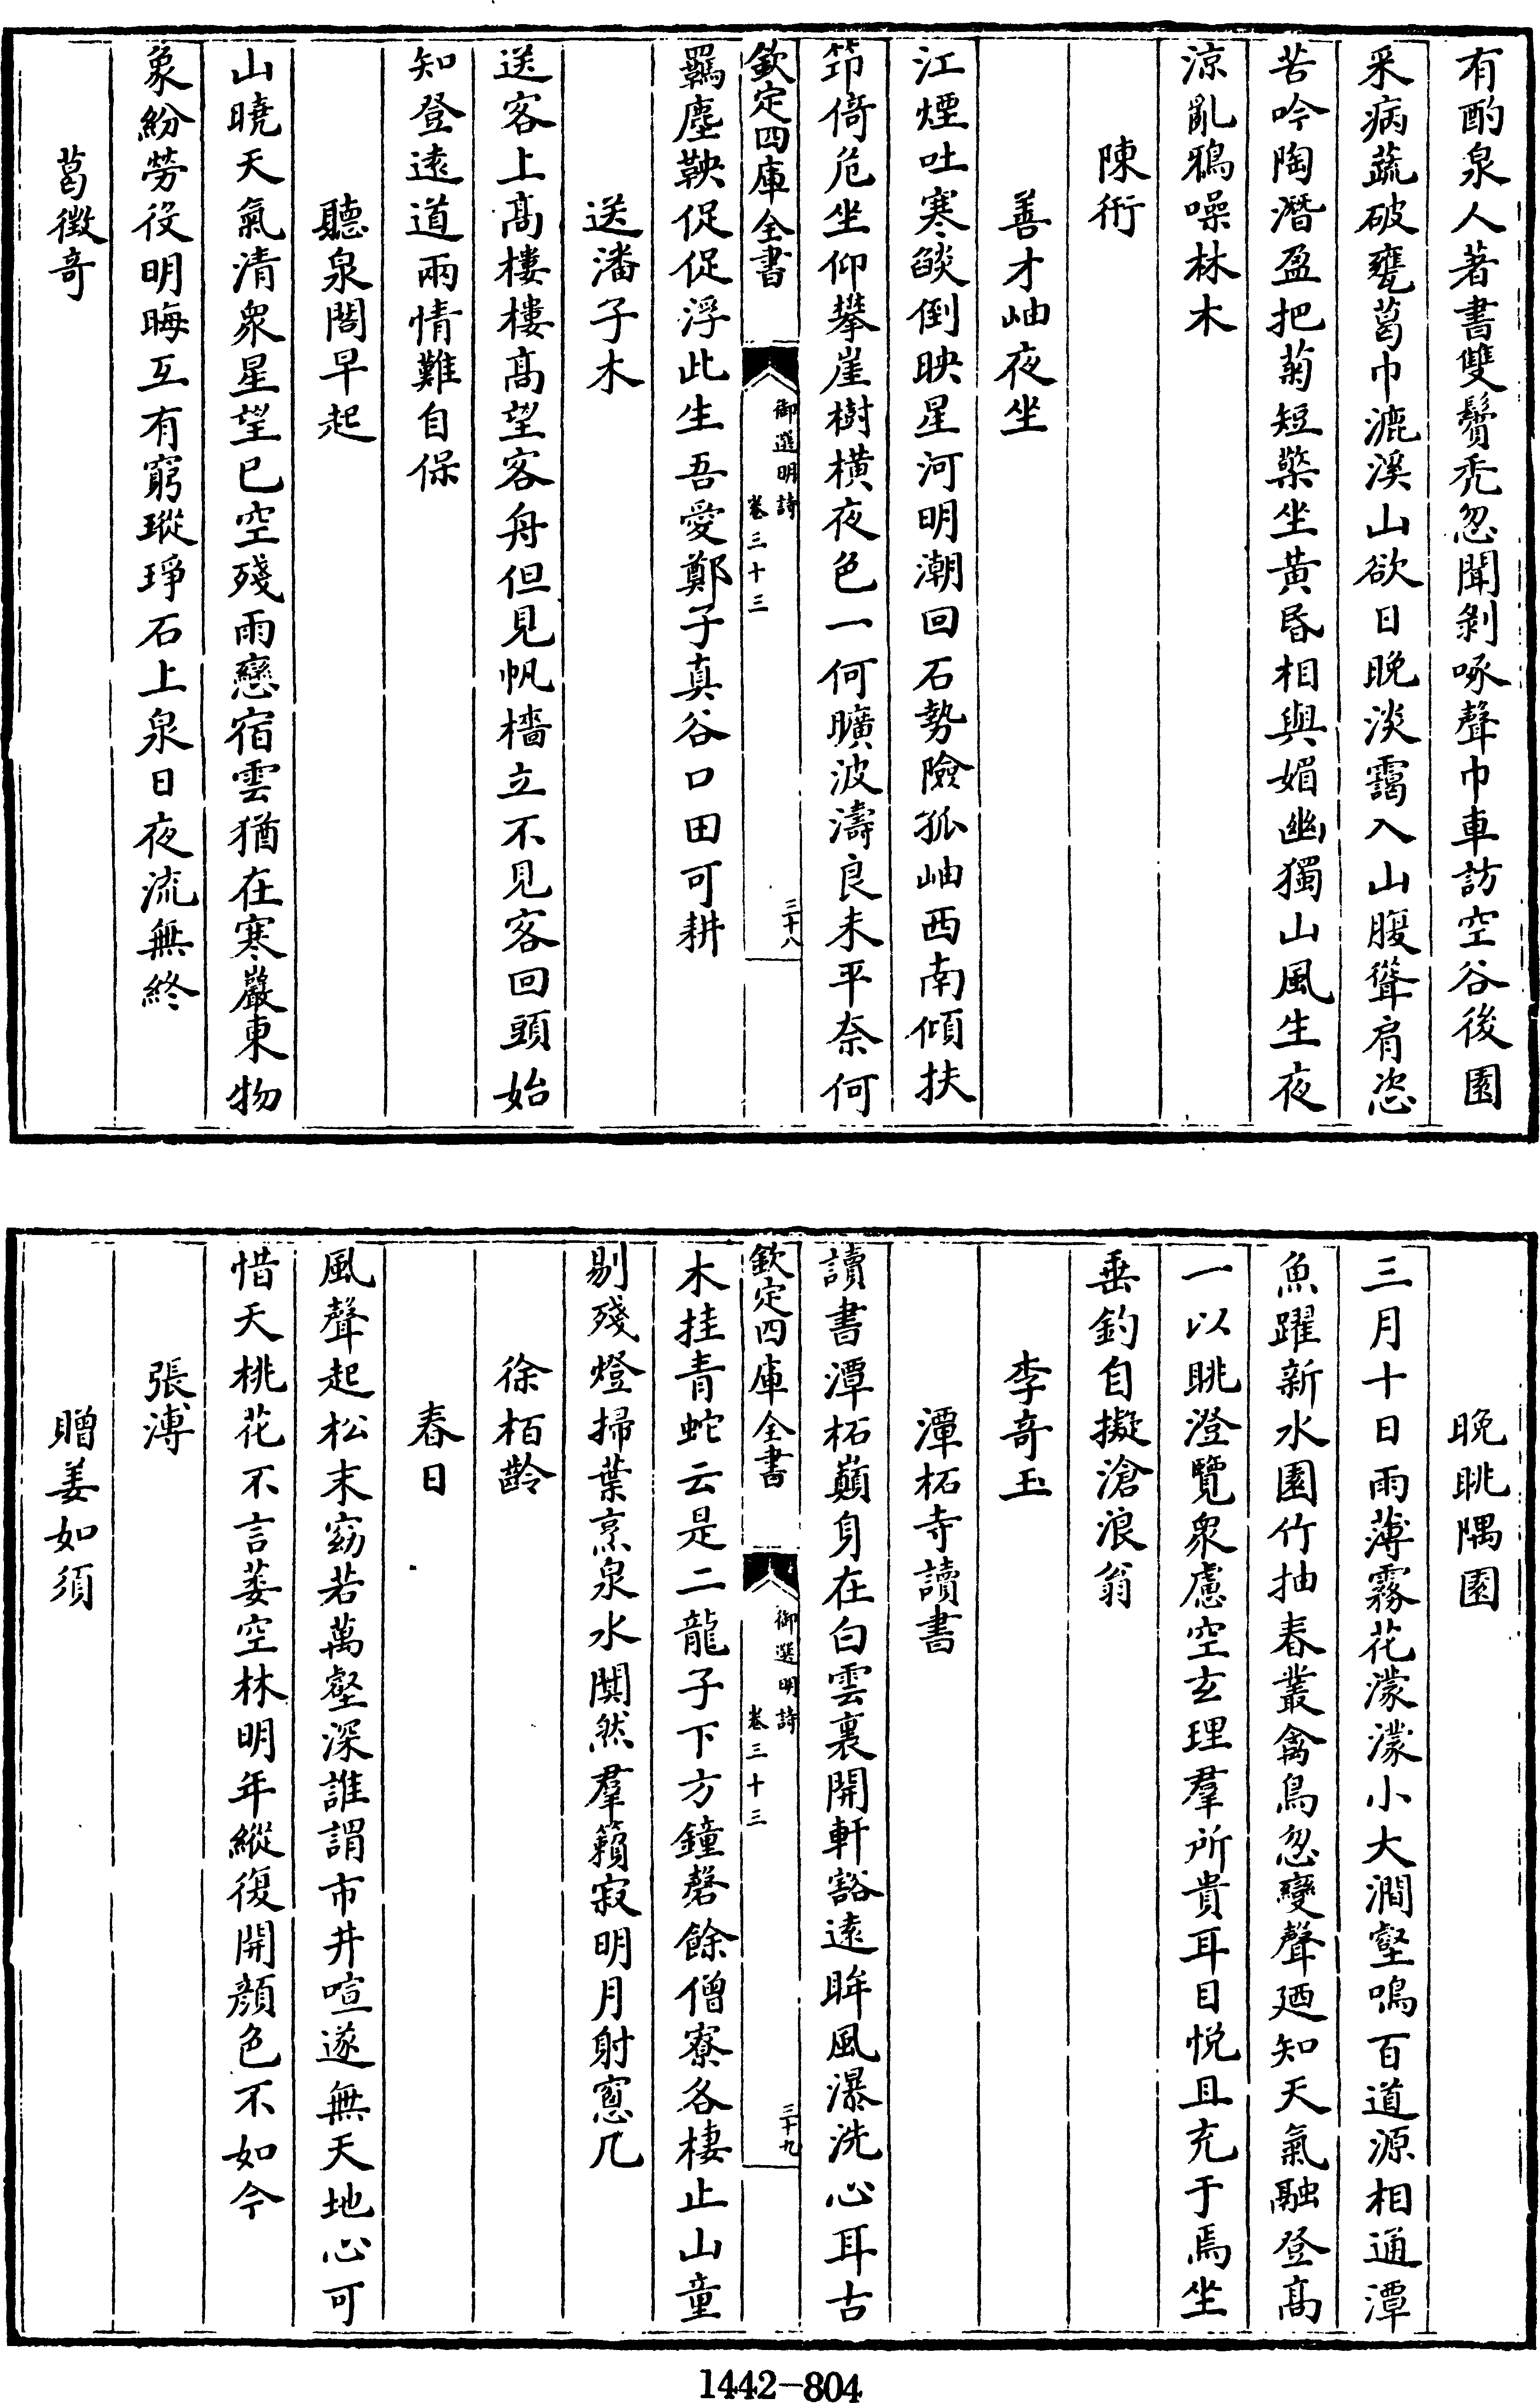 有酌泉人著書雙鬢秃忽聞剝啄聲巾車訪空谷後園
采病蔬破甕葛巾漉溪山欲日晚淡靄入山腹聳肩恣
苦吟陶潛盈把菊短檠坐黃昏相與媚幽獨山風生夜
涼亂鴉噪林木
陳衎
善才岫夜坐
江煙吐寒燄倒映星河明潮回石勢險孤岫西南傾扶
筇倚危坐仰攀崖樹橫夜色一何曠波濤良未平奈何
欽定四庫全書
御選明詩
卷三十三
三十八
羈塵鞅促促浮此生吾愛鄭子真谷口田可耕
送潘子木
送客上高樓樓高望客舟但見帆檣立不見客回頭始
知登遠道兩情難自保
聽泉閣早起
山曉天氣清衆星望已空殘雨戀宿雲猶在寒巖東物
象紛勞役明晦互有窮瑽琤石上泉日夜流無終
葛徵奇
晚眺隅園
三月十日雨薄霧花濛濛小大澗壑鳴百道源相通潭
魚躍新水園竹抽春叢禽鳥忽變聲廼知天氣融登高
一以眺澄覽衆慮空玄理羣所貴耳目悅且充于焉坐
垂釣自擬滄浪翁
李奇玉
潭柘寺讀書
讀書潭柘巔身在白雲裏開軒豁遠眸風瀑洗心耳古
欽定四庫全書
御選明詩
卷三十三
三十九
木挂青蛇云是二龍子下方鐘磬餘僧寮各棲止山童
剔殘燈掃葉烹泉水闃然羣籟寂明月射窻几
徐栢齡
春日
風聲起松末窈若萬壑深誰謂市井喧遂無天地心可
惜夭桃花不言萎空林明年縱復開顏色不如今
張溥
贈姜如須
1442-804